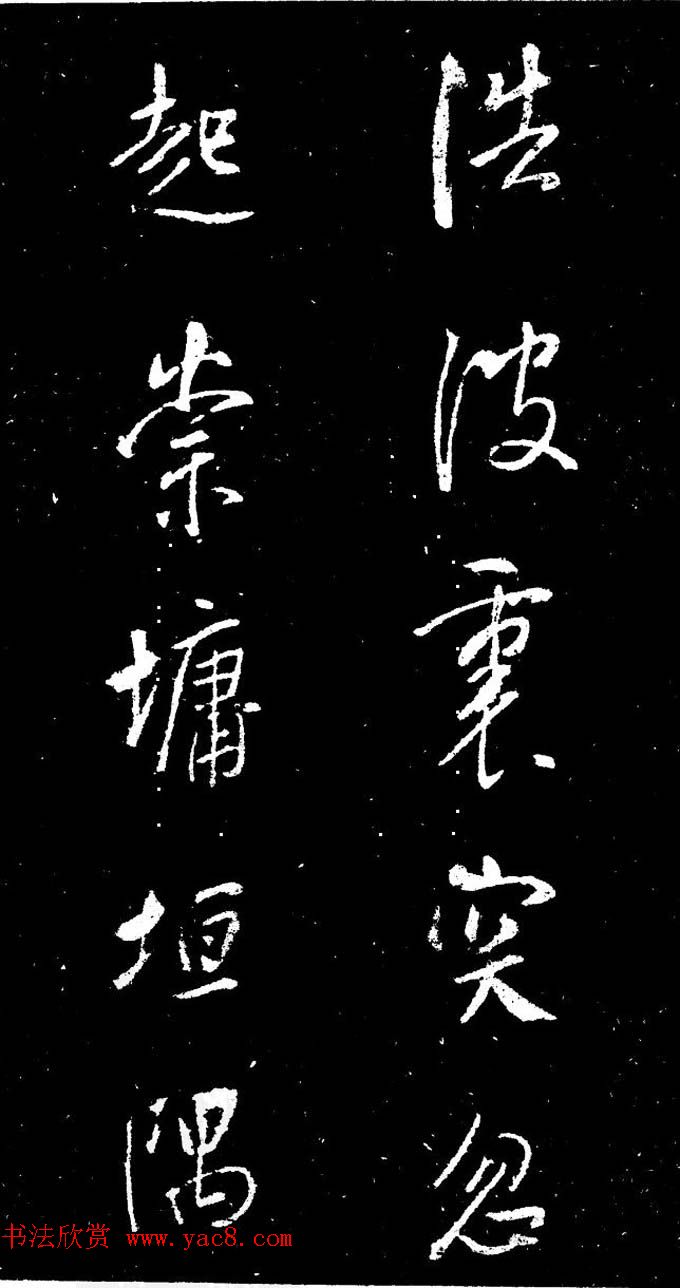 浩波裹突忽
起崇墉垣隅
书法欣赏 www.yac8.com